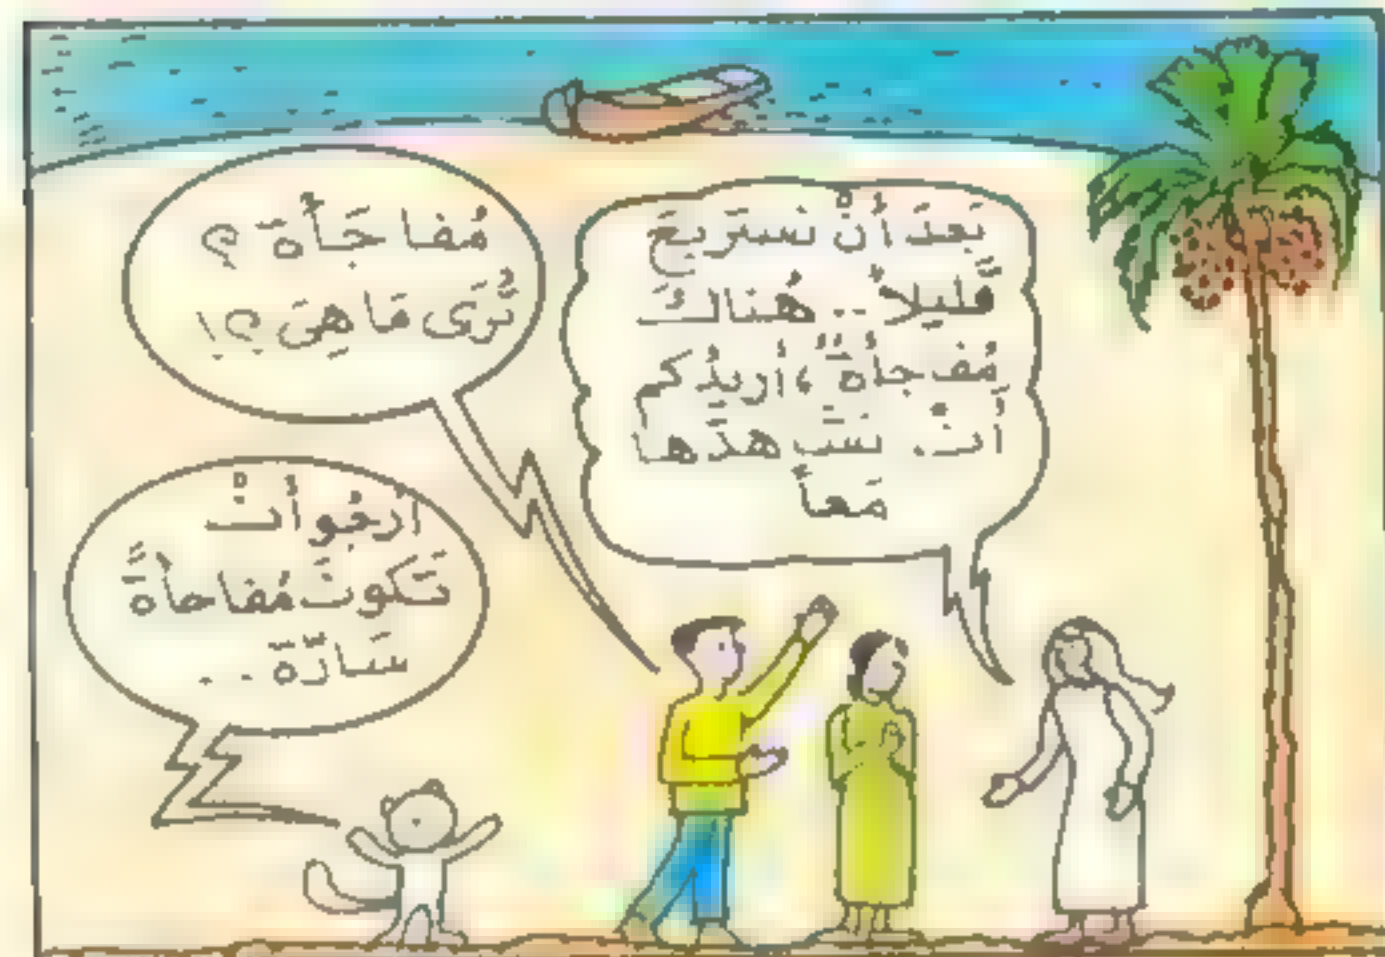 بَعدَ أنْ نَستَريحَ
قَليلاً .. هُناكَ
مُفاجأةٌ ، أُريدُكم
أنْ نُشاهدَها
مَعاً
مُفاجَأة ؟
تُرَى مَا هِيَ ؟!
أرجُو أنْ
تَكونَ مُفاجأةً
سَارّة ..